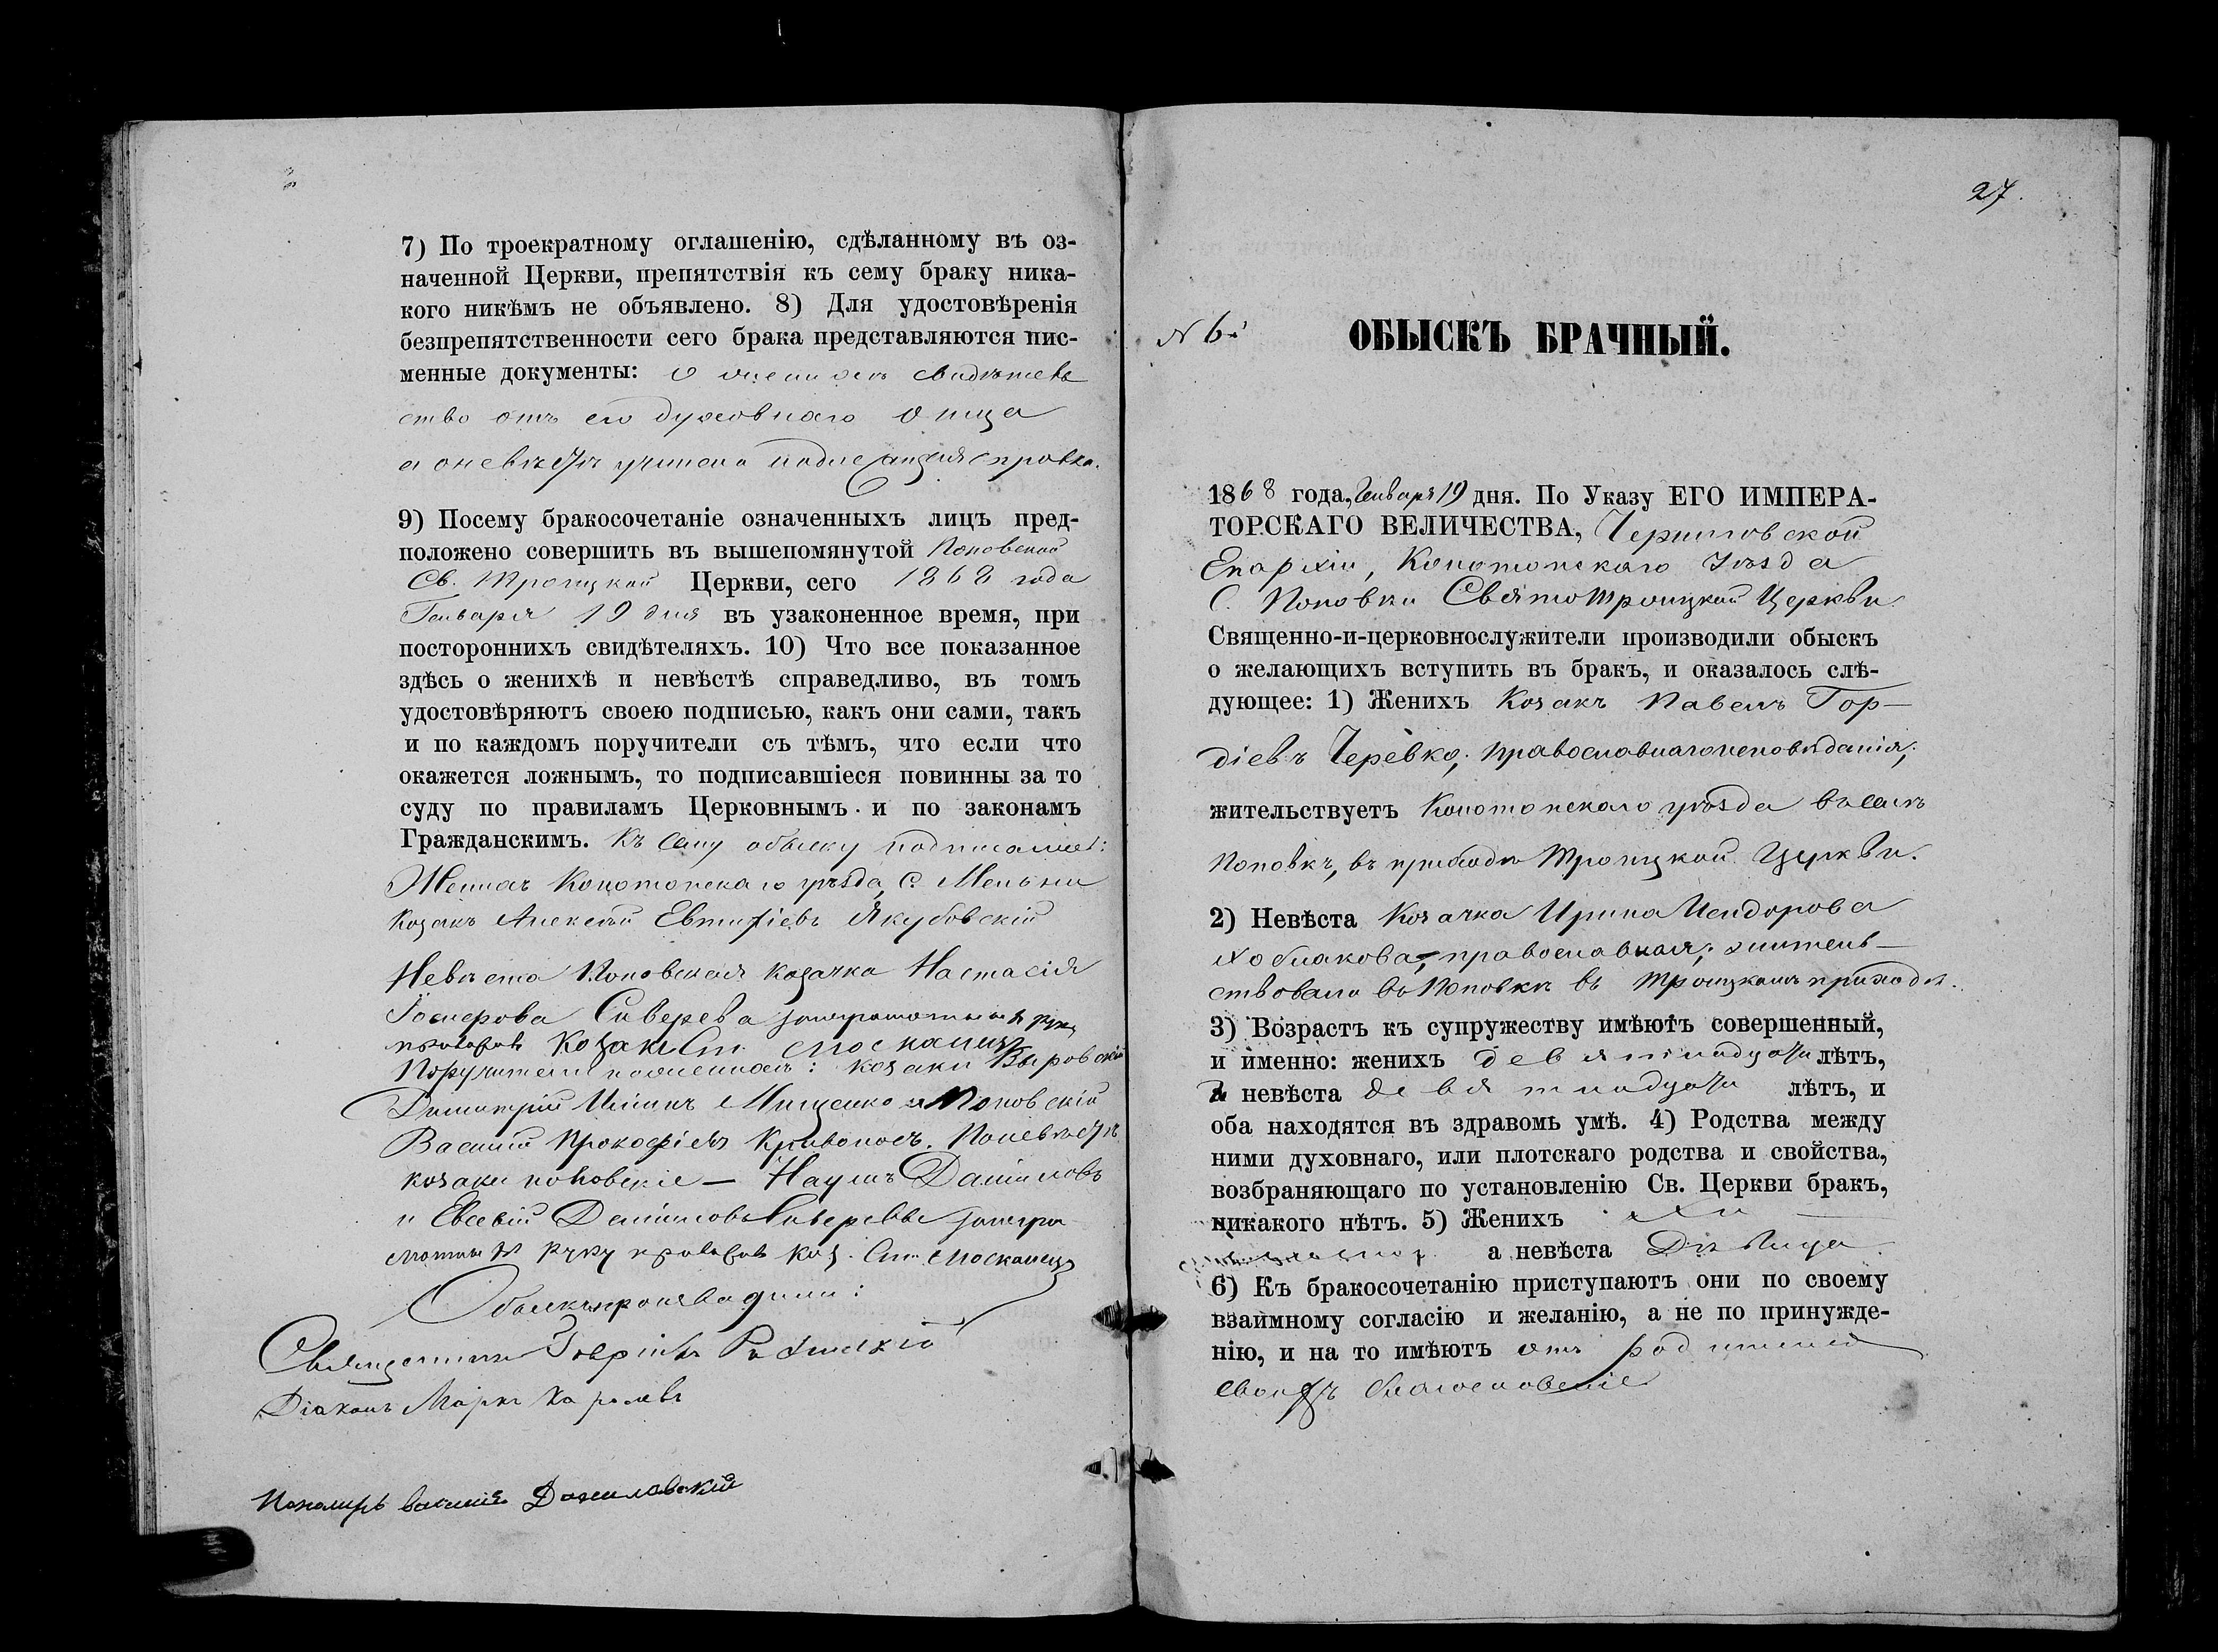 7) По троекратному оглашенію, сдѣланному въ оз-
наченной Церкви, препятствія къ сему браку ника-
кого никѣмъ не объявлено. 8) Для удостовѣренія
безпрепятственности сего брака представляются пис-
менные документы: о женихѣ свидѣтель
ство отъ его духовнаго отца
а о невѣстѣ учинена надлежащая справка.
9) Посему бракосочетаніе означенныхъ лицъ пред-
положено совершить въ вышепомянутой Поповской
Св. Троицкой Церкви, сего 1868 года
Генваря 19 дня въ узаконенное время, при
постороннихъ свидѣтеляхъ. 10) Что все показанное
здѣсь о женихѣ и невѣстѣ справедливо, въ томъ
удостовѣряютъ своею подписью, какъ они сами, такъ
и по каждомъ поручители съ тѣмъ, что если что
окажется ложнымъ, то подписавшіеся повинны за то
суду по правиламъ Церковнымъ и по законамъ
Гражданскимъ. Къ сему обыску подписались:
Женихъ Конотопскаго уѣзда, С. Меньни
Козакъ Алексѣй Евтихіевъ Якубовскій
Невѣста Поповская козачка Настасія
Сиверева
Козакъ Ст. Москалецъ
Поручители по женихѣ: козаки Выровскій
Димитрій Ильинъ Мищенко и Поповскій
Василій Прокофіевъ Кривоносъ. По невѣстѣ
козаки поповскіе — Наумъ Даніиловъ
и Евсевій Даніиловъ Сиверевы за негра
мотныхъ руку приложилъ коз. Ст. Москалецъ
Обыскъ производили:
Священникъ Гавріилъ
Діаконъ Маркъ
Пономарь Василій Даниловскій
27.
N 6й
ОБЫСКЪ БРАЧНЫЙ.
1868 года, Генваря 19 дня. По Указу ЕГО ИМПЕРА-
ТОРСКАГО ВЕЛИЧЕСТВА, Черниговской
Епархіи, Конотопскаго Уѣзда
С. Поповки Святотроицкой Церкви
Священно-и-церковнослужители производили обыскъ
о желающихъ вступить въ бракъ, и оказалось слѣ-
дующее: 1) Женихъ Козакъ Павелъ Гор-
діевъ Черевко, православнаго исповѣданія;
жительствуетъ Конотопскаго уѣзда въ селѣ
Поповкѣ, въ приходѣ Троицкой Церкви.
2) Невѣста Козачка Ирина Исидорова
православная; житель-
ствовала въ Поповкѣ въ Троицкомъ приходѣ.
3) Возрастъ къ супружеству имѣютъ совершенный,
и именно: женихъ девятнадцати лѣтъ,
а невѣста девятнадцати лѣтъ, и
оба находятся въ здравомъ умѣ. 4) Родства между
ними духовнаго, или плотскаго родства и свойства,
возбраняющаго по установленію Св. Церкви бракъ,
никакого нѣтъ. 5) Женихъ
а невѣста Дѣвица.
6) Къ бракосочетанію приступаютъ они по своему
взаимному согласію и желанію, а не по принужде-
нію, и на то имѣютъ отъ родителей
своихъ благословеніе